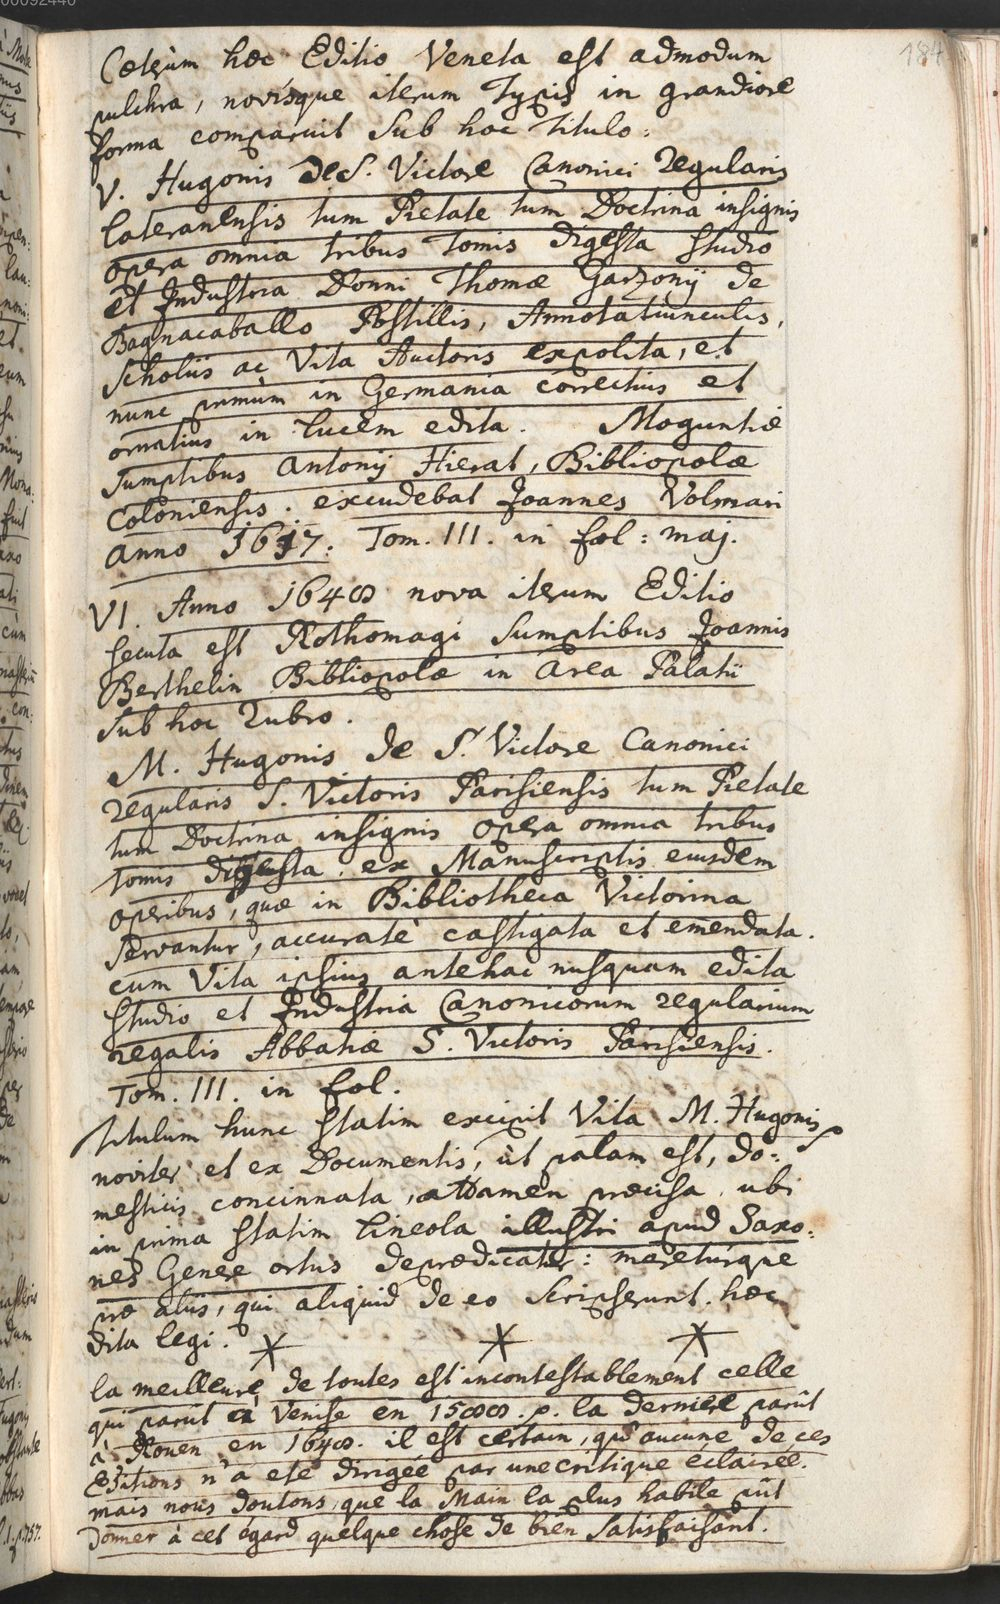 184
Cæterùm hæc Editio Veneta est admodum
pulchra, novisque iterum Typis in grandiore
forma comparuit sub hoc Titulo:
V. Hugonis de S. Victore Canonici Regularis
Lateranensis tum Pietate tum Doctrina insignis
opera omnia tribus Tomis digesta studio
et Industria Donni Thomæ Garzonij de
Bagnacaballo Postillis, Annotatiunculis,
Scholiis ac Vita Auctoris expolita, et
nunc primùm in Germania correctius et
ornatius in lucem edita. Moguntiæ
Sumptibus Antonij Hierat, Bibliopolæ
Coloniensis. excudebat Joannes Volmari
anno 1617. Tom. III. in fol: maj.
VI. Anno 1648 nova iterum Editio
secuta est Rothomagi Sumptibus Joannis
Berthelin Bibliopolæ in Area Palatii
sub hoc Rubro.
M. Hugonis de S. Victore Canonici
regularis S. Victoris Parisiensis tum Pietate
tum Doctrina insignis opera omnia tribus
Tomis digesta. ex Manuscriptis eiusdem
operibus, quæ in Bibliotheca Victorina
servantur, accuratè castigata et emendata.
cum Vita ipsius antehac nusquam edita
studio et Industria Canonicorum regularium
regalis Abbatiæ S. Victoris Parisiensis.
Tom. III. in fol.
Titulum hunc statim excipit Vita M. Hugonis
noviter et ex Documentis, ùt palam est, do:
mesticis concinnata, attamen præcisa, ubi
in prima statim lineola illustri apud Saxo:
nes Genere ortus deprædicatur: mereturque
præ aliis, qui aliquid de eo scripserunt. hæc
dita legi. * * *
la meilleure de toutes est incontestablement celle
qui parût à Venise en 1588. p. la derniere parût
à Rouen en 1648. il est certain, qu'aucune de ces
Editions n'a eté dirigée par une critique éclairée.
mais nous doutons, que la Main la plus habile pût
donner à cet égard quelque chose de bien satisfaisant.